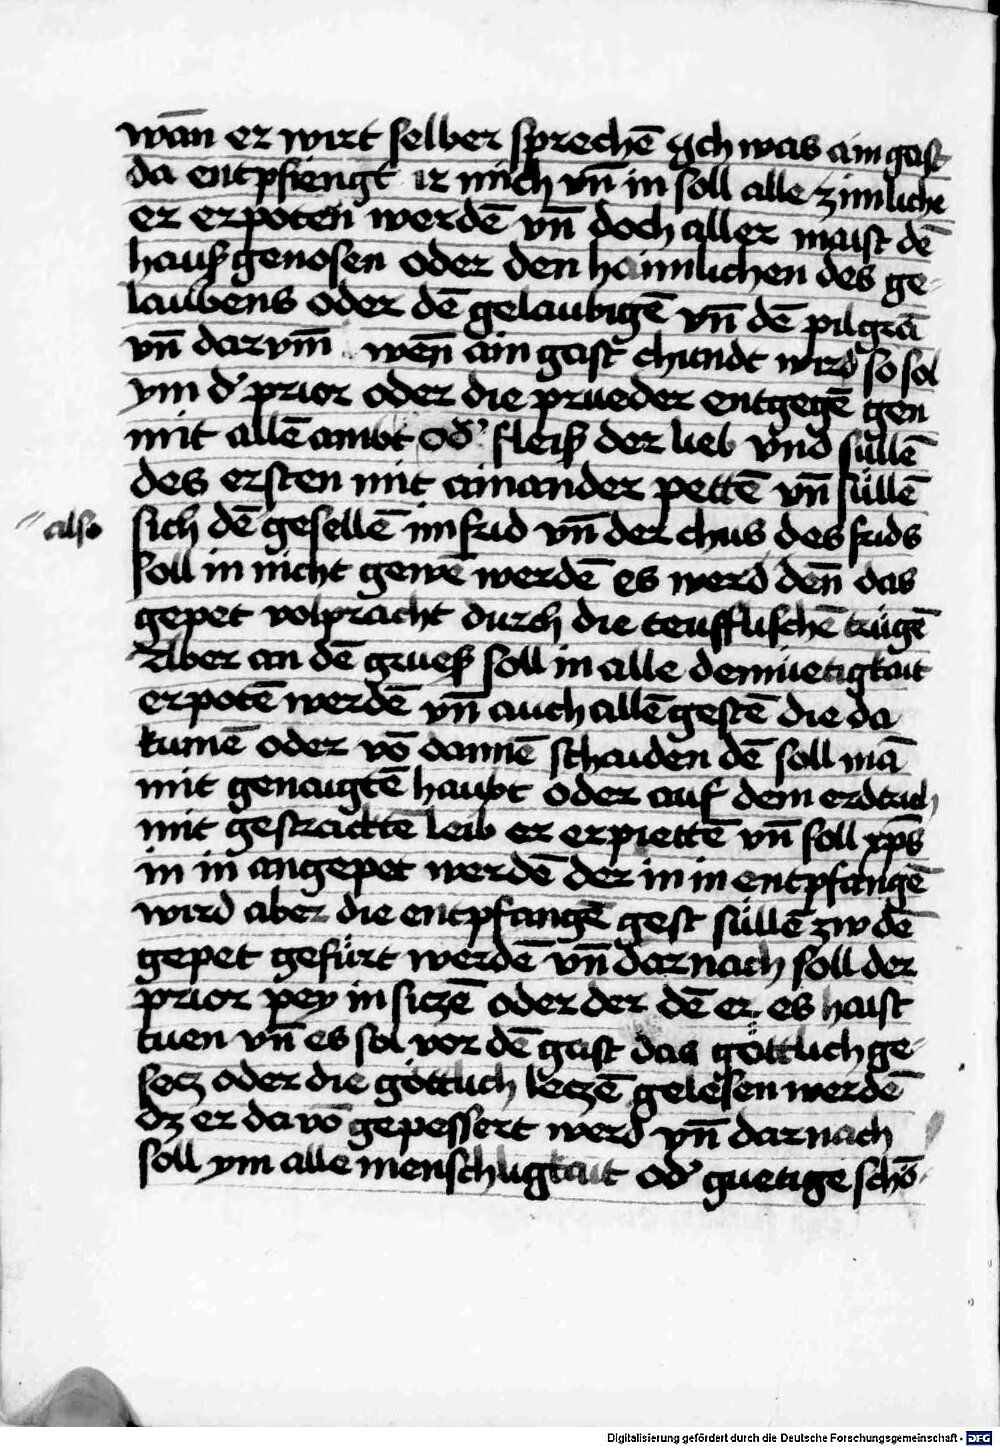 wān er wirt selber sprechē ych was ain gast
da entpfiengt ir mich vn̄ in soll alle zimlichē
er erpoten werdē vn̄ doch aller maist dē
hausgenosen oder den haimlichen des ge-
laubens oder dē gelaubigē vn̄ dē pilgrā
vn̄ darvm̄ wen̄ ain gast chundt wird so sol
ym d' prior oder die prueder entgegē gen
mit allē ambt od' fleiß der lieb vnd süllē
des ersten mit ainander pettē vn̄ süllē
also sich dē gesellē im frid vn̄ der chus des frids
soll in nicht gewē werdē es werd den̄ das
gepet volpracht durch die teufflischē trügē
Aber an dē grueß soll in alle demüetigkait
erpotē werdē vn̄ auch allē gestē die da
kumē oder vō dannē schaiden dē soll mā
mit genaigtē haubt oder auf dem erdtrich
mit gestracktē leib er erpiettē vn̄ soll xp̄s
in in angepet werdē der in in entpfangē
wird aber die entpfangē gest süllē zw dē
gepet gefürt werdē vn̄ darnach soll der
prior pey in siczē oder der dē er es haist
tuen vn̄ es sol vor dē gast das göttlich ge-
secz oder die göttlich leczē gelesen werdē
dz er da vō gepessert werd vn̄ darnach
soll ym alle menschligkait od' guetige schō-
Digitalisierung gefördert durch die Deutsche Forschungsgemeinschaft - DFG